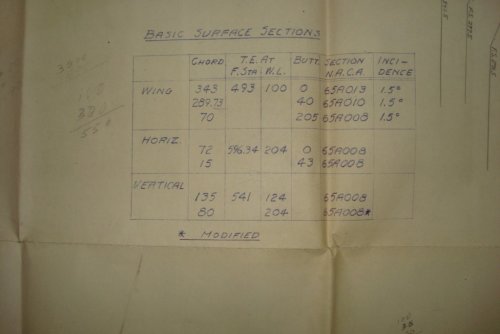 BASIC SURFACE SECTIONS
CHORD T.E. AT BUTT. SECTION INCI-
F. STA. W.L. N.A.C.A. DENCE
WING 343 493 100 0 65A013 1.5°
289.73 40 65A010 1.5°
70 205 65A008 1.5°
HORIZ. 72 596.34 204 0 65A008
15 43 65A008
VERTICAL
135 541 124 65A008
80 204 65A008*
* MODIFIED